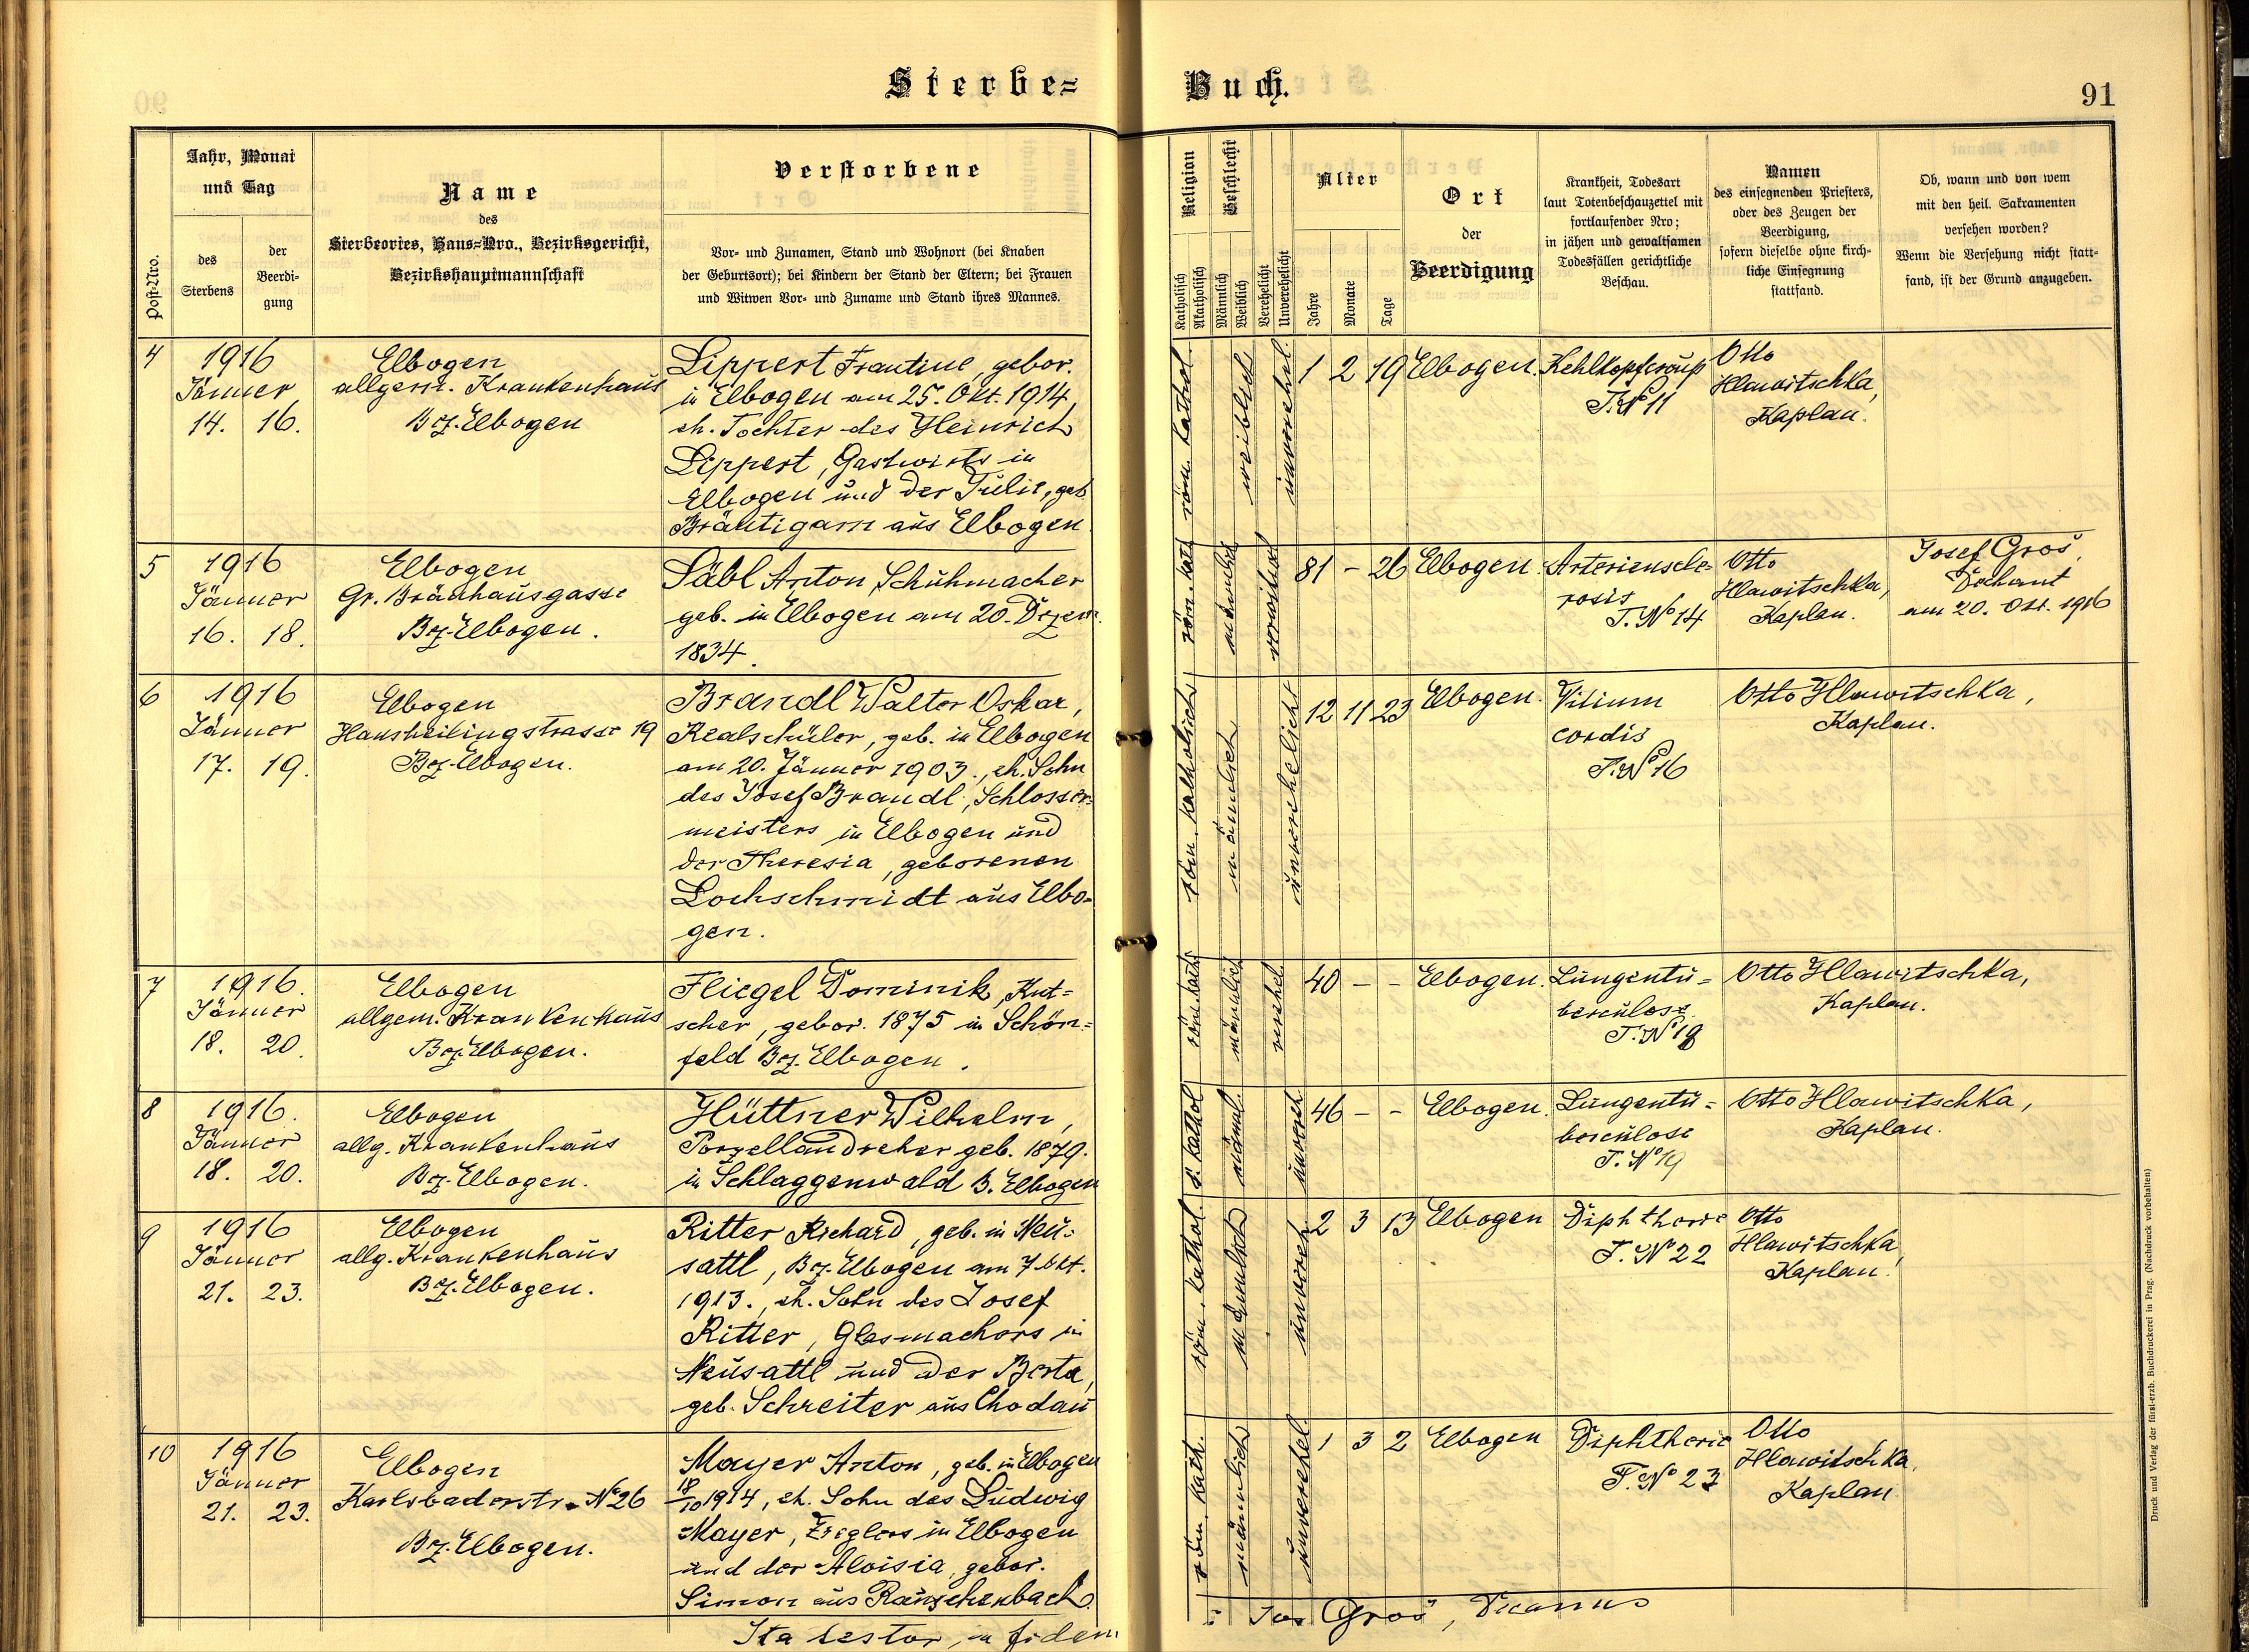 Sterbe=
Buch.
91
Post-Nro.
Jahr, Monat
und Tag
des
Sterbens
der
Beerdi-
gung
Name
des
Sterbeortes, Haus=Nro., Bezirksgericht,
Bezirkshauptmannschaft
Verstorbene
Vor- und Zunamen, Stand und Wohnort (bei Knaben
der Geburtsort); bei Kindern der Stand der Eltern; bei Frauen
und Witwen Vor- und Zuname und Stand ihres Mannes.
Religion
Katholisch
Akatholisch
Geschlecht
Männlich
Weiblich
Verehelicht
Unverehelicht
Alter
Jahre
Monate
Tage
Ort
der
Beerdigung
Krankheit, Todesart
laut Totenbeschauzettel mit
fortlaufender Nro;
in jähen und gewaltsamen
Todesfällen gerichtliche
Beschau.
Namen
des einsegnenden Priesters,
oder des Zeugen der
Beerdigung,
sofern dieselbe ohne kirch-
liche Einsegnung
stattfand.
Ob, wann und von wem
mit den heil. Sakramenten
versehen worden?
Wenn die Versehung nicht statt-
fand, ist der Grund anzugeben.
4
1916
Jänner
14. 16.
Elbogen
allgem. Krankenhaus
Bez. Elbogen
Lippert Frantine, gebor.
in Elbogen am 25. Okt. 1914,
eh. Tochter des Heinrich
Lippert, Gastwirts in
Elbogen und der Julie, geb.
Bräutigam aus Elbogen.
röm. kathol.
weiblich
unverehel.
1 2 19
Elbogen.
Kehlkopfcroup
T. No 11
Otto
Hlawitschka,
Kaplan.
5
1916
Jänner
16. 18.
Elbogen
Gr. Bräuhausgasse
Bez. Elbogen.
Säbl Anton, Schuhmacher
geb. in Elbogen am 20. Dezem.
1834.
röm. kath.
männlich
verwitwet
81 - 26
Elbogen.
Arterienscle=
rosis
T. No 14
Otto
Hlawitschka,
Kaplan.
Josef Groš,
Dechant
am 20. Okt. 1916
6
1916
Jänner
17. 19.
Elbogen
Hansheilingstrasse 19
Bez. Elbogen.
Brandl Walter Oskar,
Realschüler, geb. in Elbogen
am 20. Jänner 1903., eh. Sohn
des Josef Brandl, Schlosser=
meisters in Elbogen und
der Theresia, geborenen
Lochschmidt aus Elbo=
gen.
röm. katholisch
männlich
unverehelicht
12 11 23
Elbogen.
Vitium
cordis
T. No 16
Otto Hlawitschka,
Kaplan.
7
1916.
Jänner
18. 20.
Elbogen
allgem. Krankenhaus
Bez. Elbogen.
Fliegel Dominik, Kut=
scher, gebor. 1875 in Schön=
feld Bez. Elbogen.
röm. kath.
männlich
verehel.
40 - -
Elbogen.
Lungentu=
berculose.
T. No 18
Otto Hlawitschka,
Kaplan.
8
1916.
Jänner
18. 20.
Elbogen
allg. Krankenhaus
Bez. Elbogen.
Hüttner Wilhelm,
Porzellandreher geb. 1879.
in Schlaggenwald B. Elbogen
r. kathol
männl.
unvereh.
46 - -
Elbogen.
Lungentu=
berculose
T. No 19
Otto Hlawitschka,
Kaplan.
9
1916
Jänner
21. 23.
Elbogen
allg. Krankenhaus
Bez. Elbogen.
Ritter Richard, geb. in Neu=
sattl, Bez. Elbogen am 7. Okt.
1913., eh. Sohn des Josef
Ritter, Glasmachers in
Neusattl und der Berta,
geb. Schreiter aus Chodau
röm. kathol.
männlich
unvereh.
2 3 13
Elbogen
Diphtherie
T. No 22
Otto
Hlawitschka,
Kaplan.
10
1916
Jänner
21. 23.
Elbogen
Karlsbaderstr. No 26
Bez. Elbogen.
Mayer Anton, geb. in Elbogen
18/10 1914, eh. Sohn des Ludwig
Mayer, Zieglers in Elbogen
und der Aloisia, gebor.
Simon aus Rauschenbach.
röm. kath.
männlich
unverehel.
1 3 2
Elbogen
Diphtherie
T. No 23
Otto
Hlawitschka,
Kaplan
Ita testor, in fidem
: Jos Groš, Decanus
Druck und Verlag der fürst-erzb. Buchdruckerei in Prag. (Nachdruck vorbehalten)